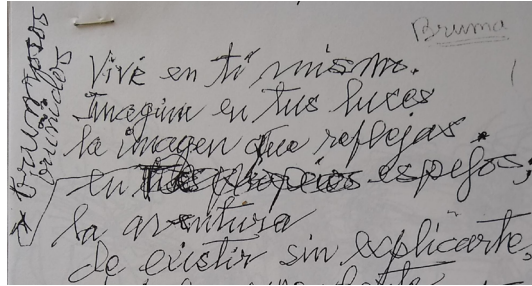 Bruma
* brumosos
bruñidos
Vive en ti mismo.
Imagina en tus luces
la imagen que reflejas *
en tus propios espejos;
la aventura
de existir sin explicarte,